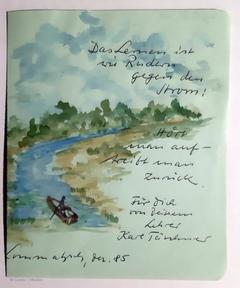 Das Lernen ist
wie Rudern
gegen den
Strom!
Hört
man auf-
treibt man
zurück.
Für Dich
von Deinem
Lehrer
Karl
Lommatzsch, der. 85